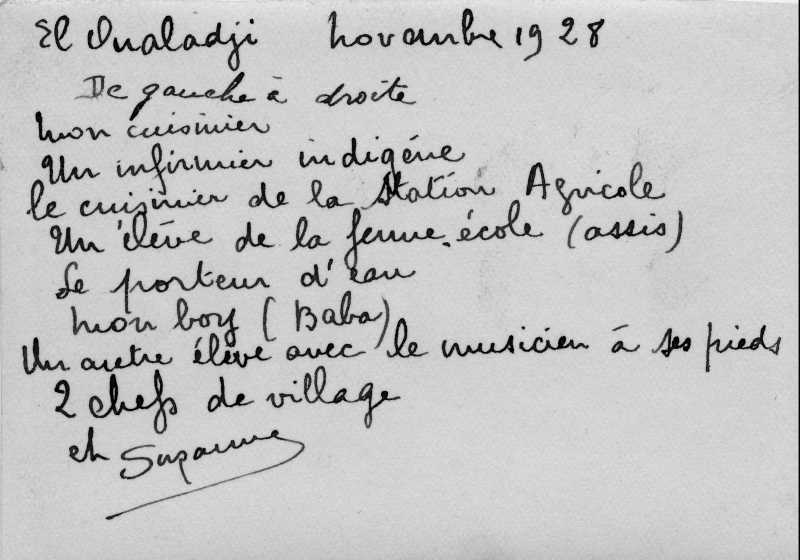 El Oualadji novembre 1928
De gauche à droite
mon cuisinier
Un infirmier indigéne
le cuisinier de la Station Agricole
Un élève de la ferme.école (assis)
Le porteur d'eau
mon boy (Baba)
Un autre élève avec le musicien à ses pieds
2 chefs de village
et Suzanne